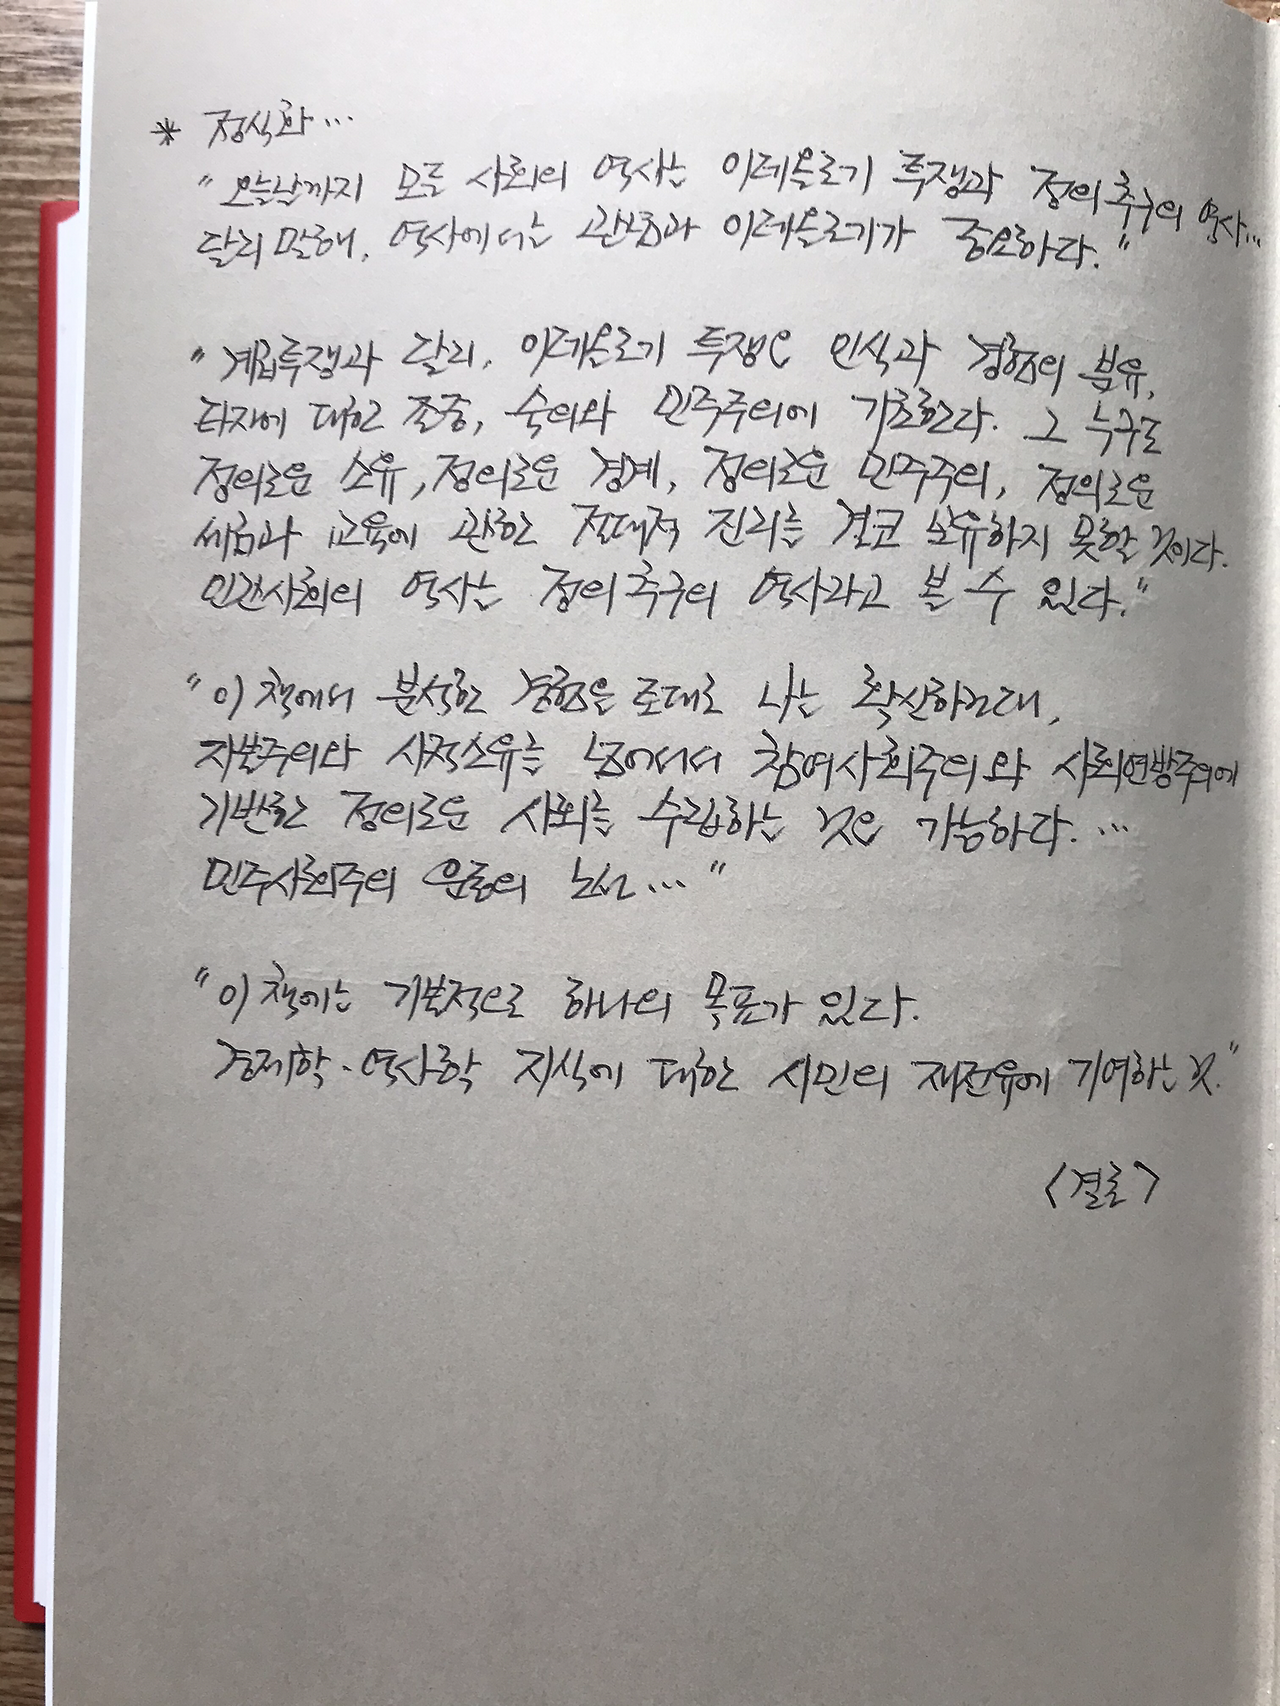 * 정식화…
"오늘날까지 모든 사회의 역사는 이데올로기 투쟁과 정의추구의 역사…
달리 말해, 역사에서는 관념과 이데올로기가 중요하다."
"계급투쟁과 달리, 이데올로기 투쟁은 인식과 경험의 분유,
타자에 대한 존중, 숙의와 민주주의에 기초한다. 그 누구도
정의로운 소유, 정의로운 경계, 정의로운 민주주의, 정의로운
세금과 교육에 관한 절대적 진리를 결코 보유하지 못할 것이다.
인간사회의 역사는 정의추구의 역사라고 볼 수 있다."
"이 책에서 분석한 경험을 토대로 나는 확신하건대,
자본주의와 사적소유를 넘어서서 참여사회주의와 사회연방주의에
기반한 정의로운 사회를 수립하는 것은 가능하다. …
민주사회주의 운동의 노선…"
"이 책에는 기본적으로 하나의 목표가 있다.
경제학·역사학 지식에 대한 시민의 재전유에 기여하는 것."
<결론>